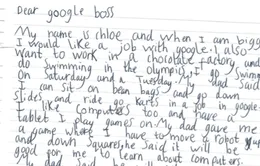 Dear google boss
My name is chloe and when I am bigg
I would like a job with google. I also
want to work in a chocolate factory and
do swimming in the olympics. I go swimg
On Saturday and a Tuesday. My dad said
I can sit on bean bags and go down
slides and ride go karts in a job in google
I like computers too and have a
tablet I play games on. My dad gave me
a game where I have to move a robot up
and down squares, he said it will be
good for me to learn about computers.
My dad